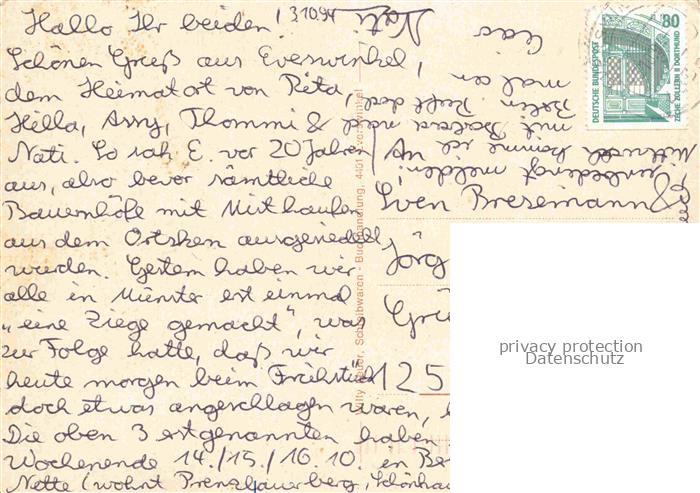 Hallo Ihr beiden! 3.10.94
Schönen Gruß aus Everswinkel,
dem Heimatort von Rita,
Hella, Assy, Thommi &
Nati. So sah E. vor 20 Jahren
aus, also bevor sämtliche
Bauernhöfe mit Misthaufen
aus dem Ortskern ausgesiedelt
wurden. Gestern haben wir
alle in Münster erst einmal
„eine Ziege gemacht“, was
zur Folge hatte, daß wir
heute morgen beim Frühstück
doch etwas angeschlagen waren,
Die oben 3 erstgenannten haben
Wochenende 14./15./16.10. in Be
Nette (wohnt Prenzlauerberg, Schönhau
Mittwoch komme ich
mit
Berlin
mal an
unbedingt melden!
Ciao
Nati
Sven Bresemann &
Jörg
Grü
125
4401 Everswinkel
Schreibwaren - Buchhandlung,
DEUTSCHE BUNDESPOST
80
ZECHE ZOLLERN II DORTMUND
privacy protection
Datenschutz